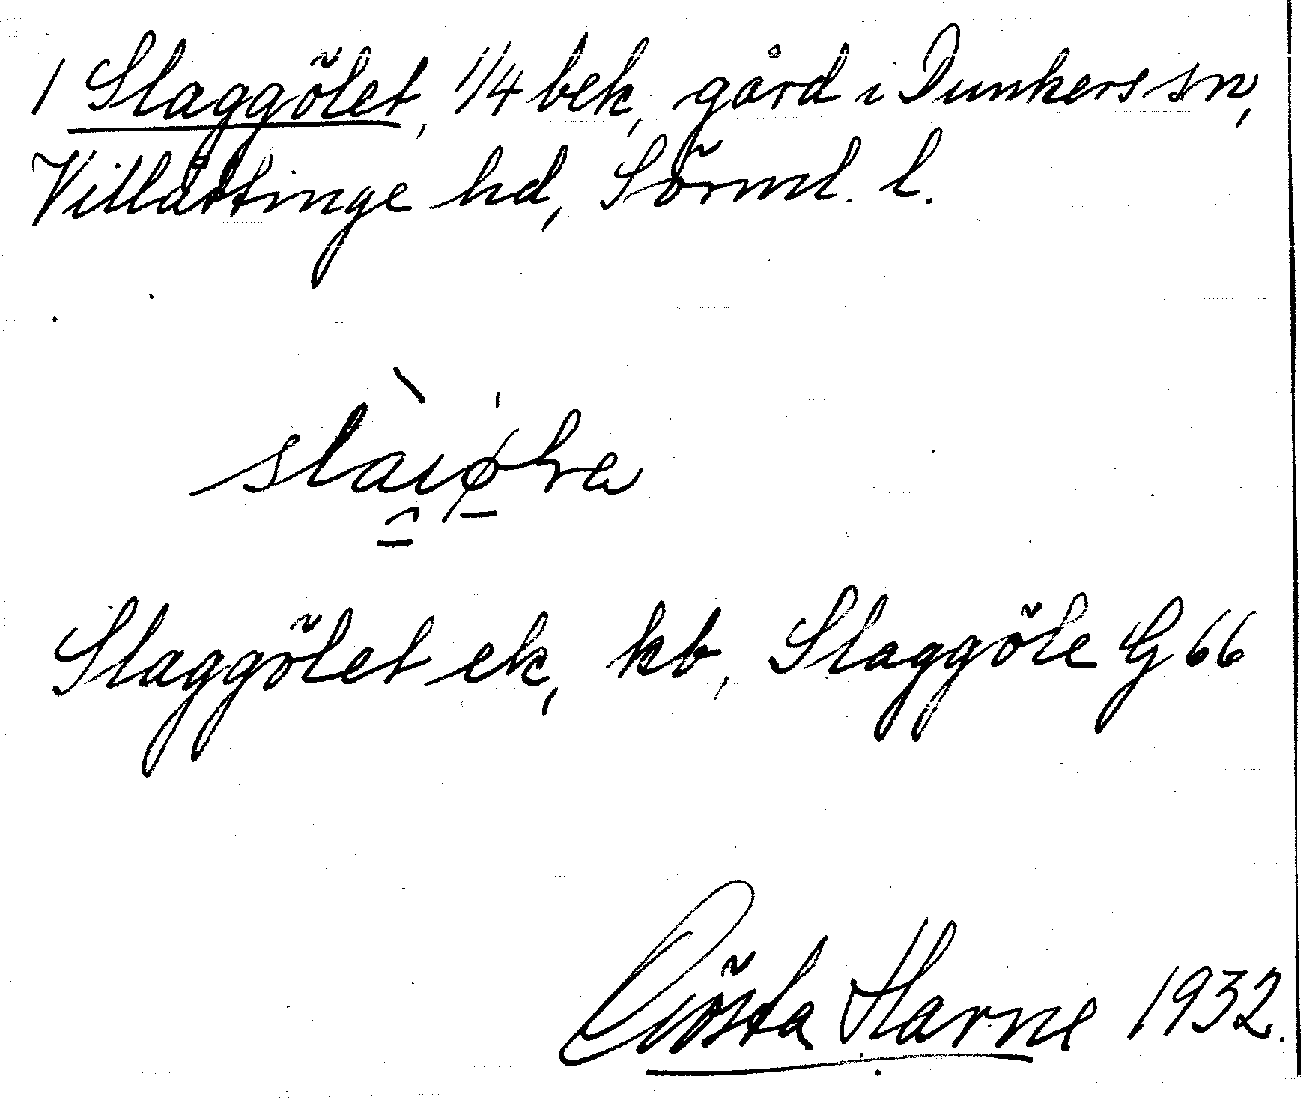 1 Slaggölet, 1/4 bek, gård i Dunkers sn,
Villåttinge hd, Sörml. l.
Slaggölet ek, kb, Slaggöle G 66
Gösta Harne 1932.